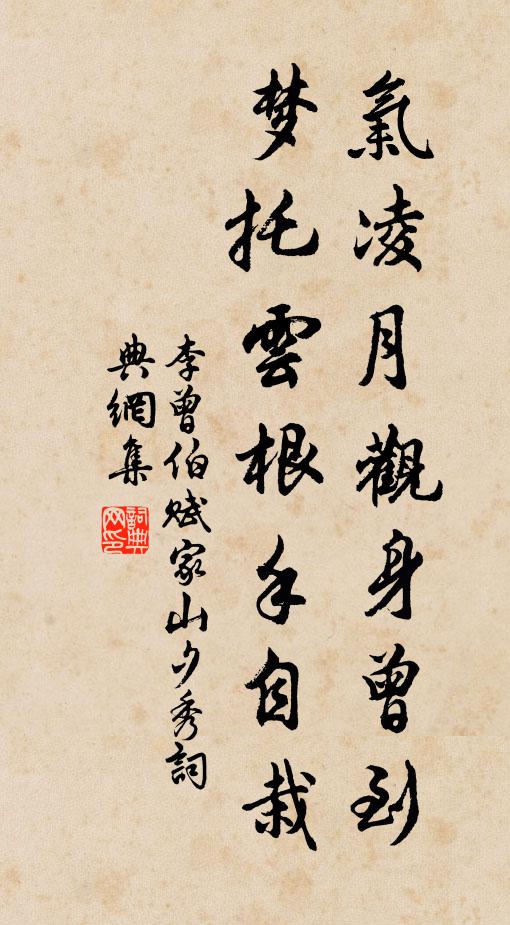 氣凌月觀身曾到
梦托雲根手自栽
李曾伯赋家山夕秀詞
典網集
詞典
网印